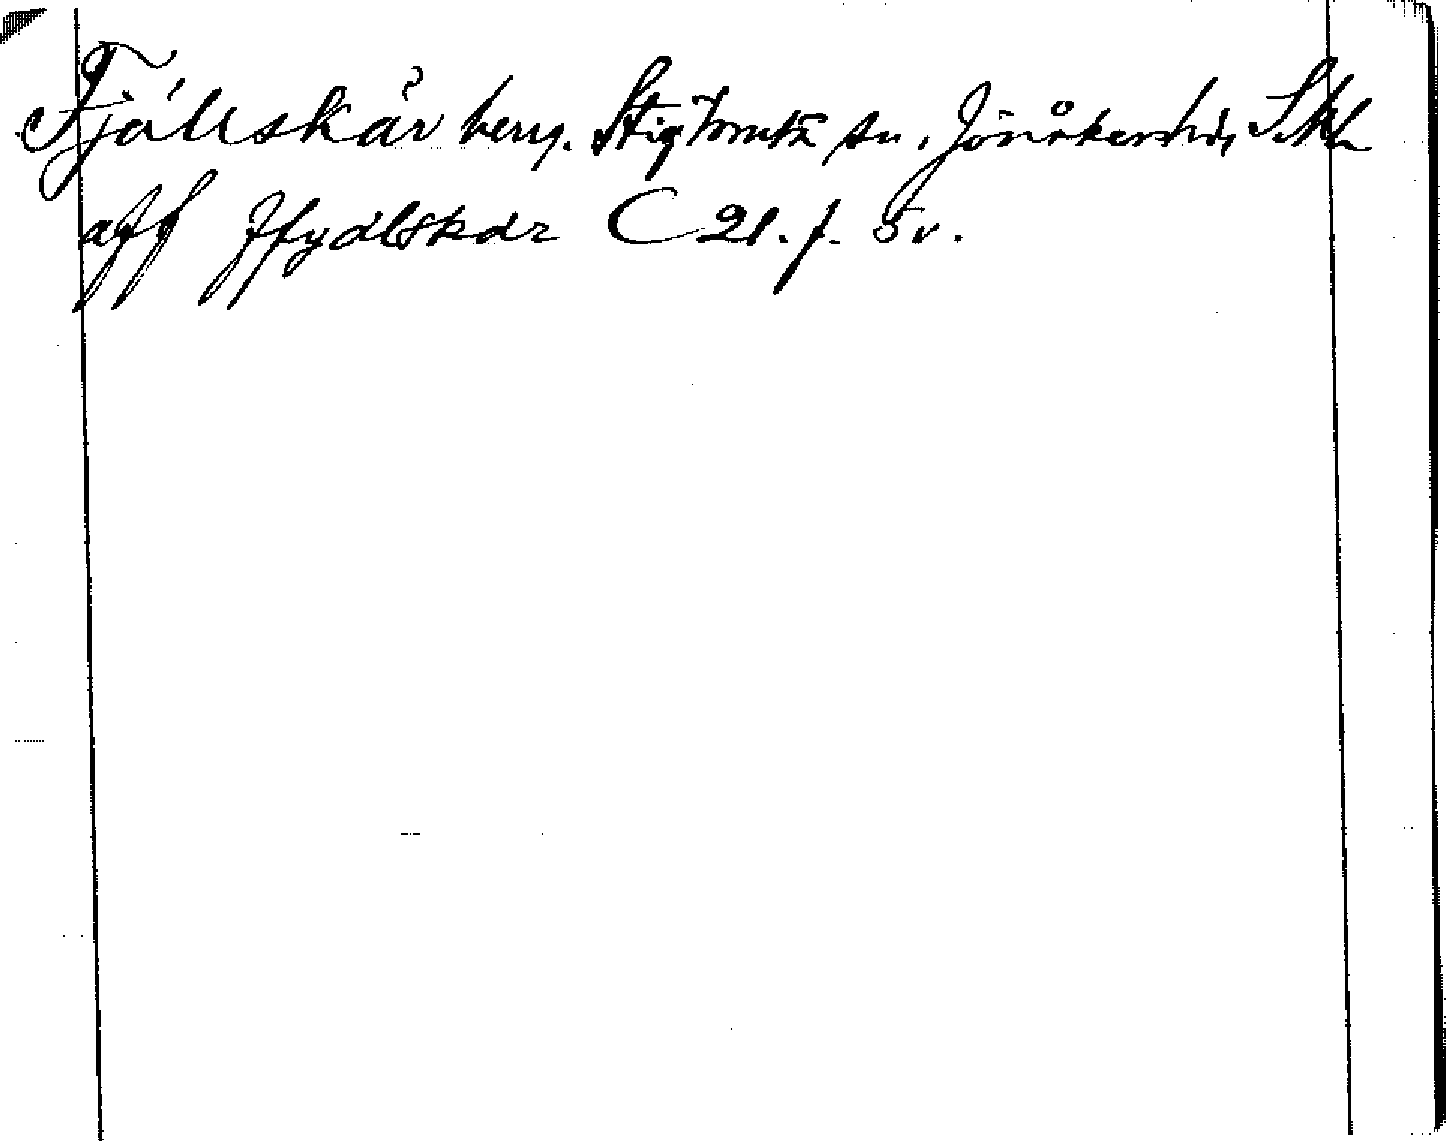 Fjällskär herg. Stigtomta sn. Jönåkers hd, Sthl
aff ffydlskdr C 21. f. 5v.